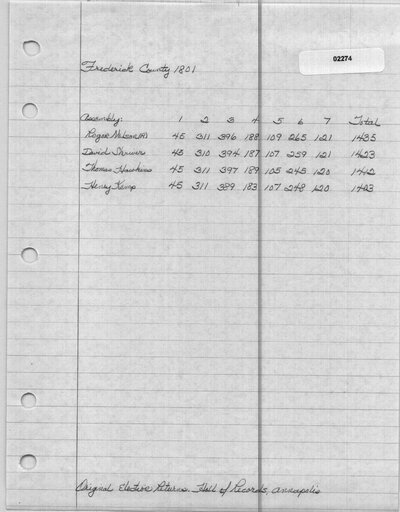 02274
Frederick County 1801
Assembly: 1 2 3 4 5 6 7 Total
Roger Nelson(R) 45 311 396 188 109 265 121 1435
David Shriver 45 310 394 187 107 259 121 1423
Thomas Hawkins 45 311 397 189 105 245 120 1412
Henry Kemp 45 311 389 183 107 248 120 1403
Original Election Returns. Hall of Records, Annapolis